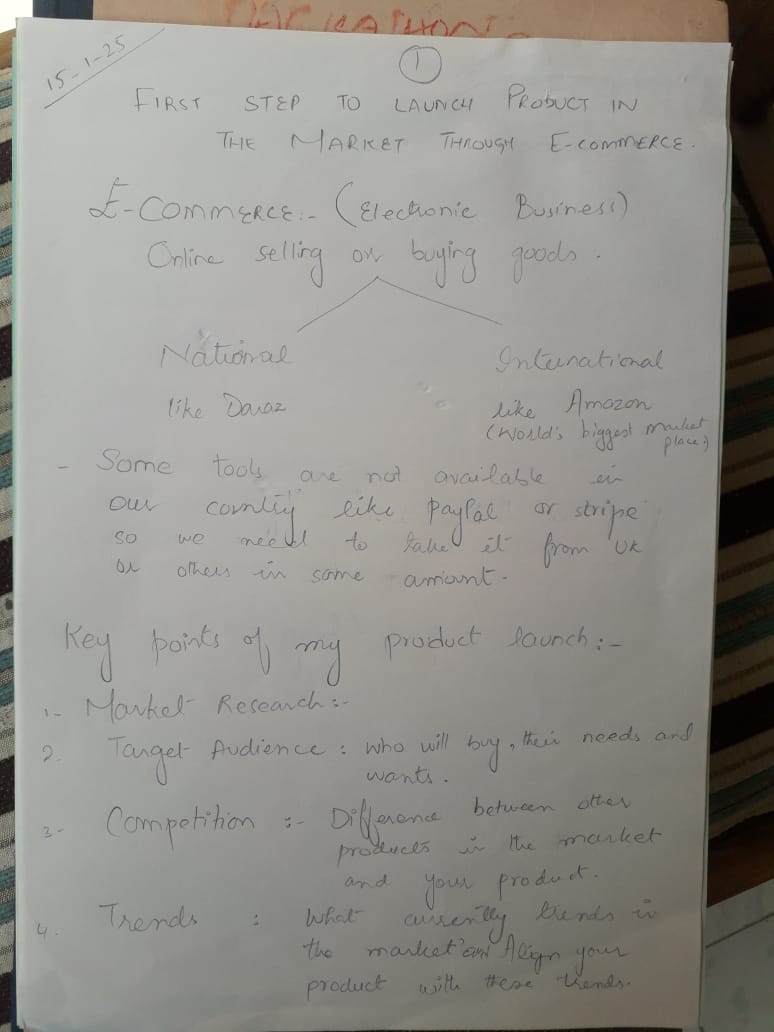 HACKATHON
15-1-25
1
FIRST STEP TO LAUNCH PRODUCT IN
THE MARKET THROUGH E-COMMERCE.
E-COMMERCE:- (Electronic Business)
Online selling or buying goods.
National
International
like Daraz
like Amazon
(World's biggest market
place)
- Some tools are not available in
our country like PayPal or stripe
so we need to take it from UK
or others in some amount.
Key points of my product launch:-
1- Market Research:-
2. Target Audience : who will buy, their needs and
wants.
3- Competition :- Difference between other
products in the market
and your product.
4. Trends : What currently trends in
the market and Align your
product with these trends.